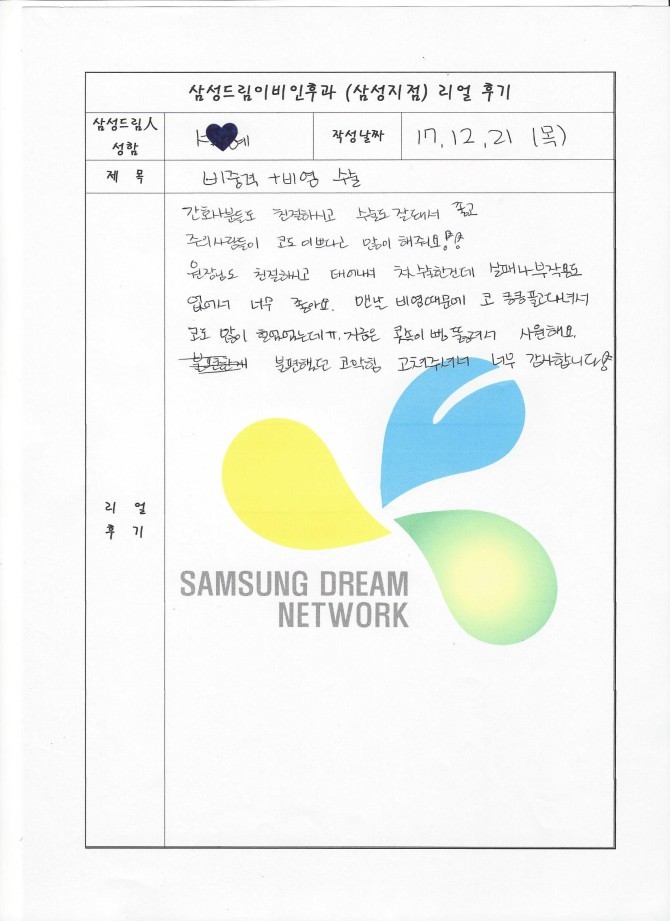 삼성드림이비인후과 (삼성지점) 리얼 후기
삼성드림人
성함
예
작성날짜
17, 12, 21 (목)
제 목
비중격 + 비염 수술
간호사분들도 친절하시고 수술도 잘돼서 좋고
주의사람들이 코도 이쁘다고 많이 해줘요!!
원장님도 친절하시고 태어나서 처음 수술한건데 실패나 부작용도
없어서 너무 좋아요. 맨날 비염때문에 코 킁킁풀고다녀서
코도 많이 헐었었는데ㅠ. 지금은 콧속이 뻥 뚫려서 시원해요.
불편했던 코막힘 고쳐주셔서 너무 감사합니다
리 얼
후 기
SAMSUNG DREAM
NETWORK